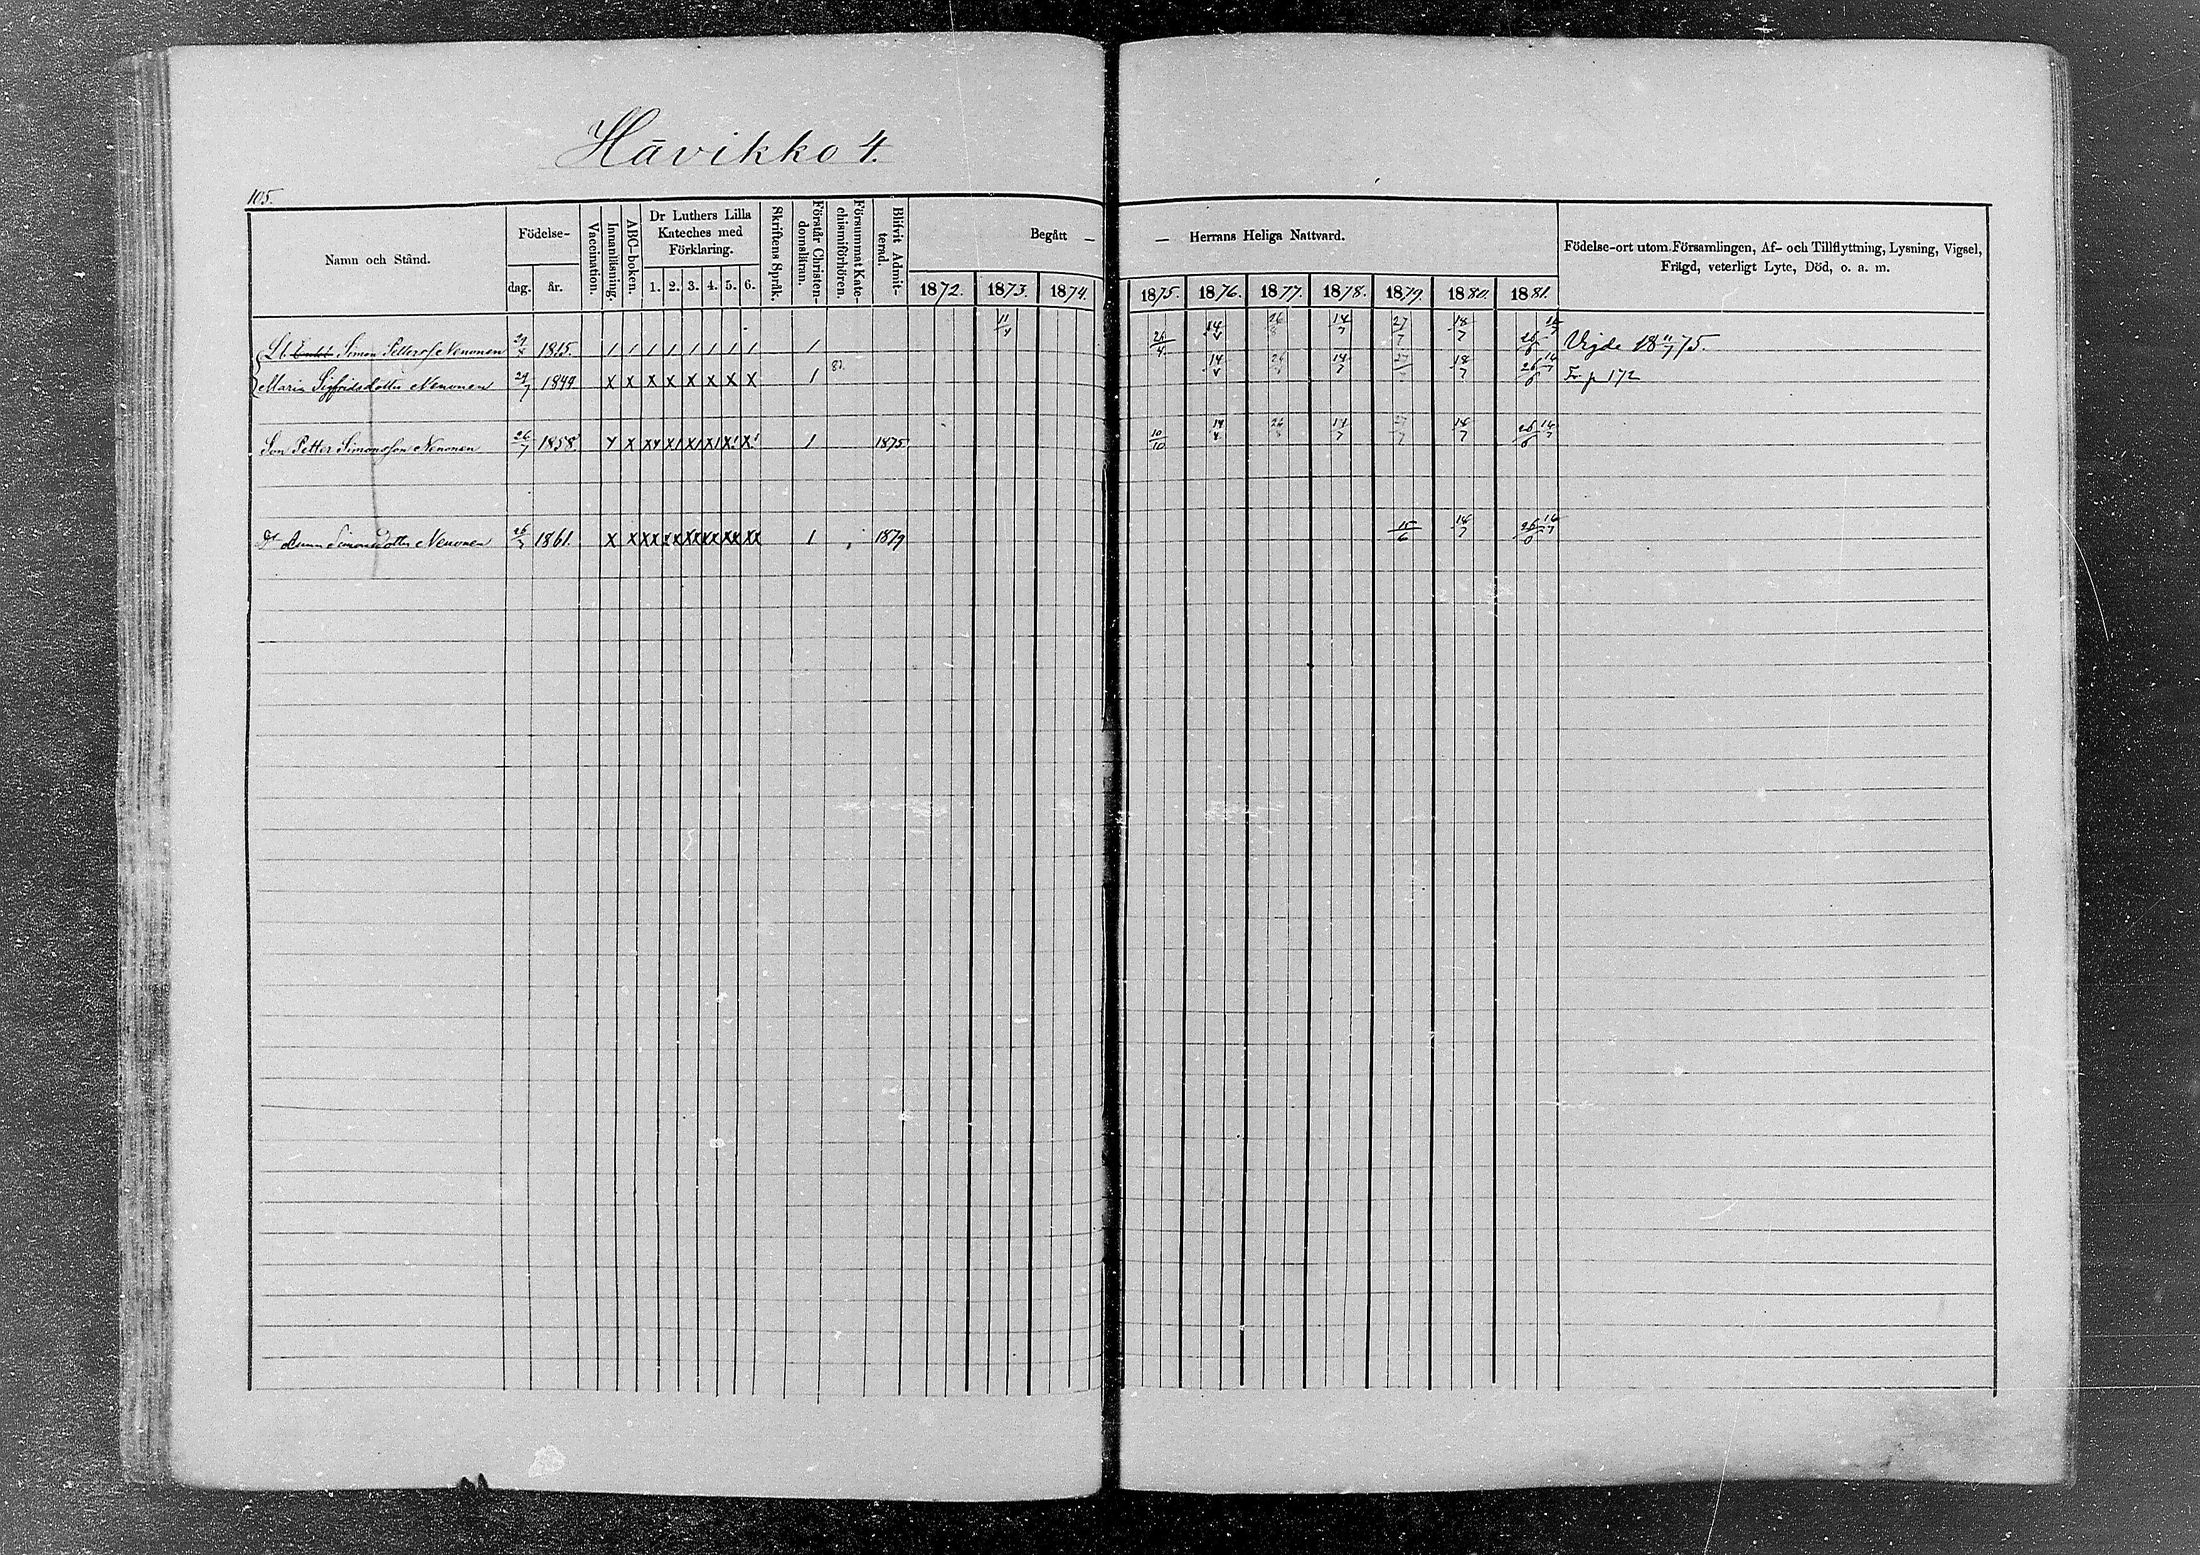 Håvikko 4.
105.
Namn och Stånd.
Födelse-
dag. år.
Vaccination.
Innanläsning.
ABC-boken.
Dr Luthers Lilla
Kateches med
Förklaring.
1. 2. 3. 4. 5. 6.
Skriftens Språk.
Förstår Christen-
domsläran.
Försummat Kate-
chismiförhören.
Blifvit Admit-
terad.
Begått — — Herrans Heliga Nattvard.
1872. 1873. 1874. 1875. 1876. 1877. 1878. 1879. 1880. 1881.
Födelse-ort utom Församlingen, Af- och Tillflyttning, Lysning, Vigsel,
Frägd, veterligt Lyte, Död, o. a. m.
Simon Petters. Nenonen 1815. / / / / / / / / / 1 11/4 26/4 14/8 26/8 14/7 27/7 18/7 Vigde 18 11/7 75.
Maria Sigfridsdotter Nenonen 29/7 1849 x x x x x x x x 1 14/8 26/8 14/7 27 18/7 Fr p 172
Son Petter Simonsson Nenonen 26/7 1858. 1 1875 10/10 14/8 26/8 14/7 18/7 26/6 14/7
Dr Anna Simonsdotter Nenonen 1861. x x xx xx xx xx xx xx 1 1879 15/6 18/7 26/6 14/7